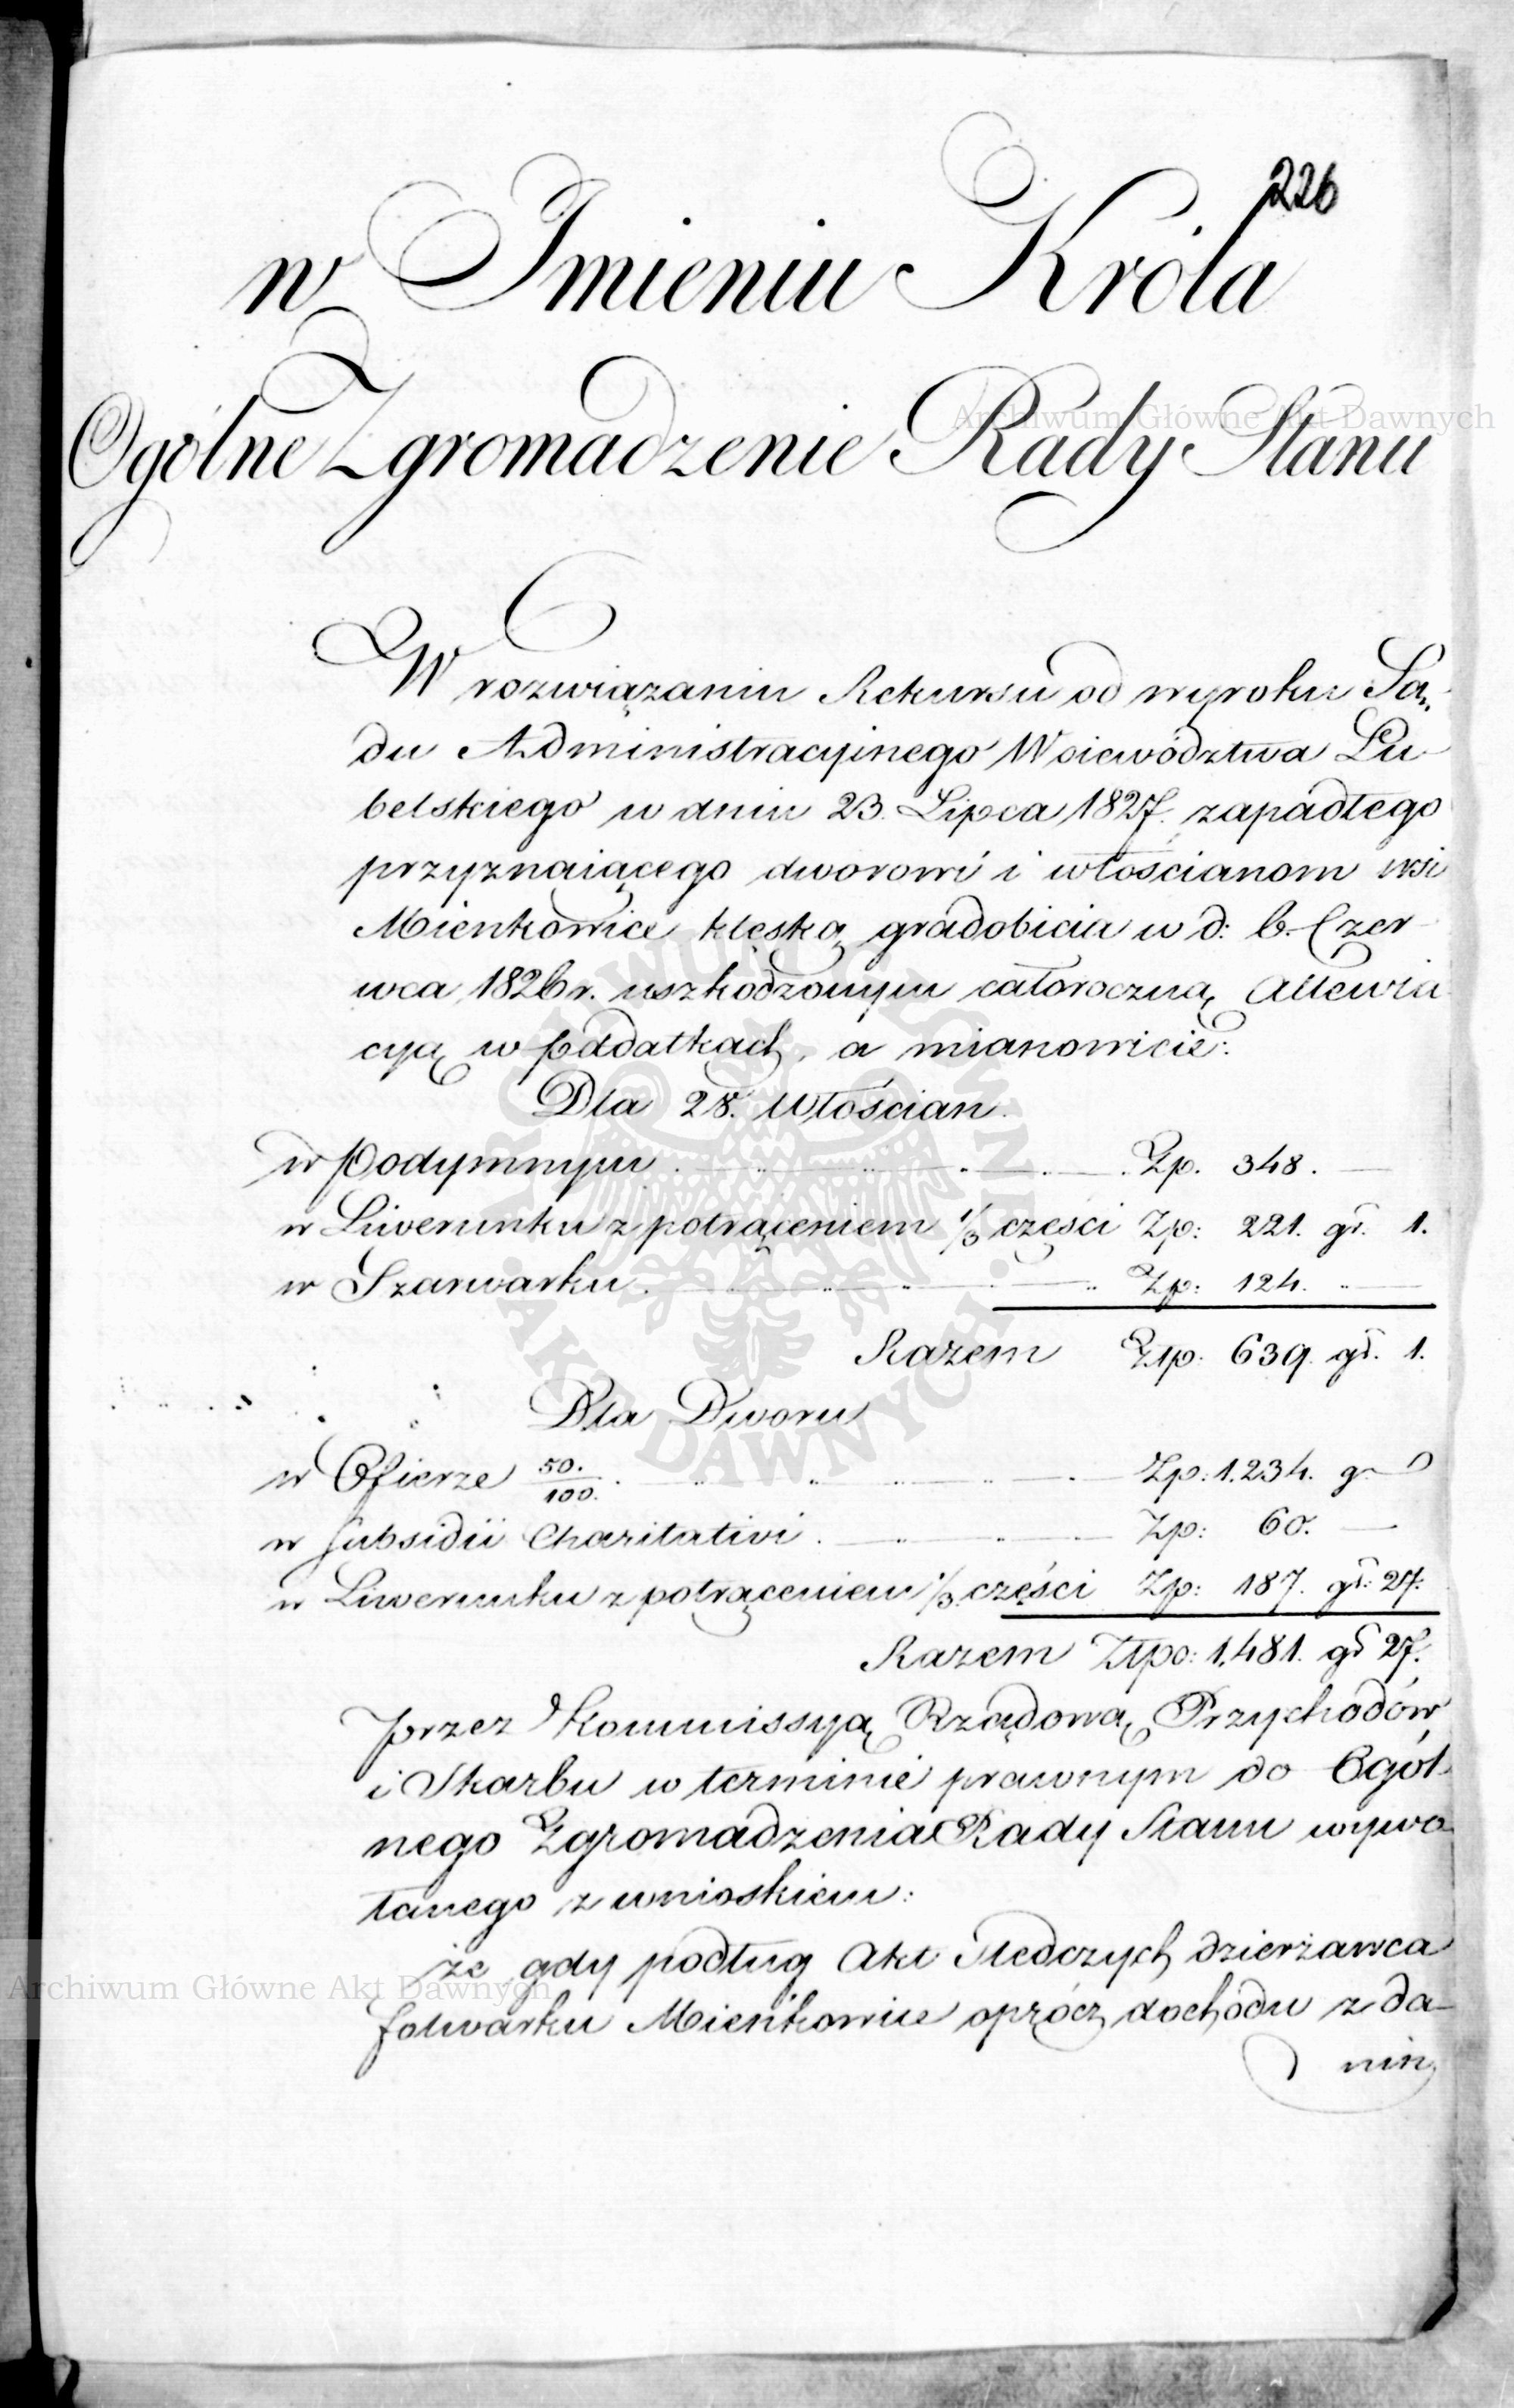 226
w Imieniu Króla
Ogólne Zgromadzenie Rady Stanu
W rozwiązaniu Rekursu od wyroku Są„
du Administracyinego Woiewództwa Lu-
belskiego w dniu 23. Lipca 1827. zapadłego
przyznaiącego dworowi i włościanom wsi
Mienkowice klęską gradobicia w d: 6. Czer-
wca 1826 r. uszkodzonym całoroczną Allewia
cyą w Poddatkach, a mianowicie:
Dla 28. Włościan.
w Podymnym . Zp. 348. —
w Liwerunku z potrąceniem 1/3 części Zp: 221. gr. 1.
w Szarwarku . Zp: 124. —
Razem Złp: 639. gr. 1.
Dla Dworu
w Ofierze 50./100. Zp: 1.234. g —
w Subsidii Charitativi . Zp: 60. —
w Liwerunku z potrąceniem 1/3 części Zp: 187. gr: 27.
Razem Złpo: 1,481. gr 27.
przez Kommissyą Rządową Przychodów
i Skarbu w terminie prawnym do Ogól-
nego Zgromadzenia Rady Stanu wywo
łanego z wnioskiem:
że gdy podług Akt Sledczych dzierżawca
folwarku Mieńkowice oprócz dochodu z da-
nin
Archiwum Główne Akt Dawnych
Archiwum Główne Akt Dawnych
ARCHIWUM GŁÓWNE AKT DAWNYCH